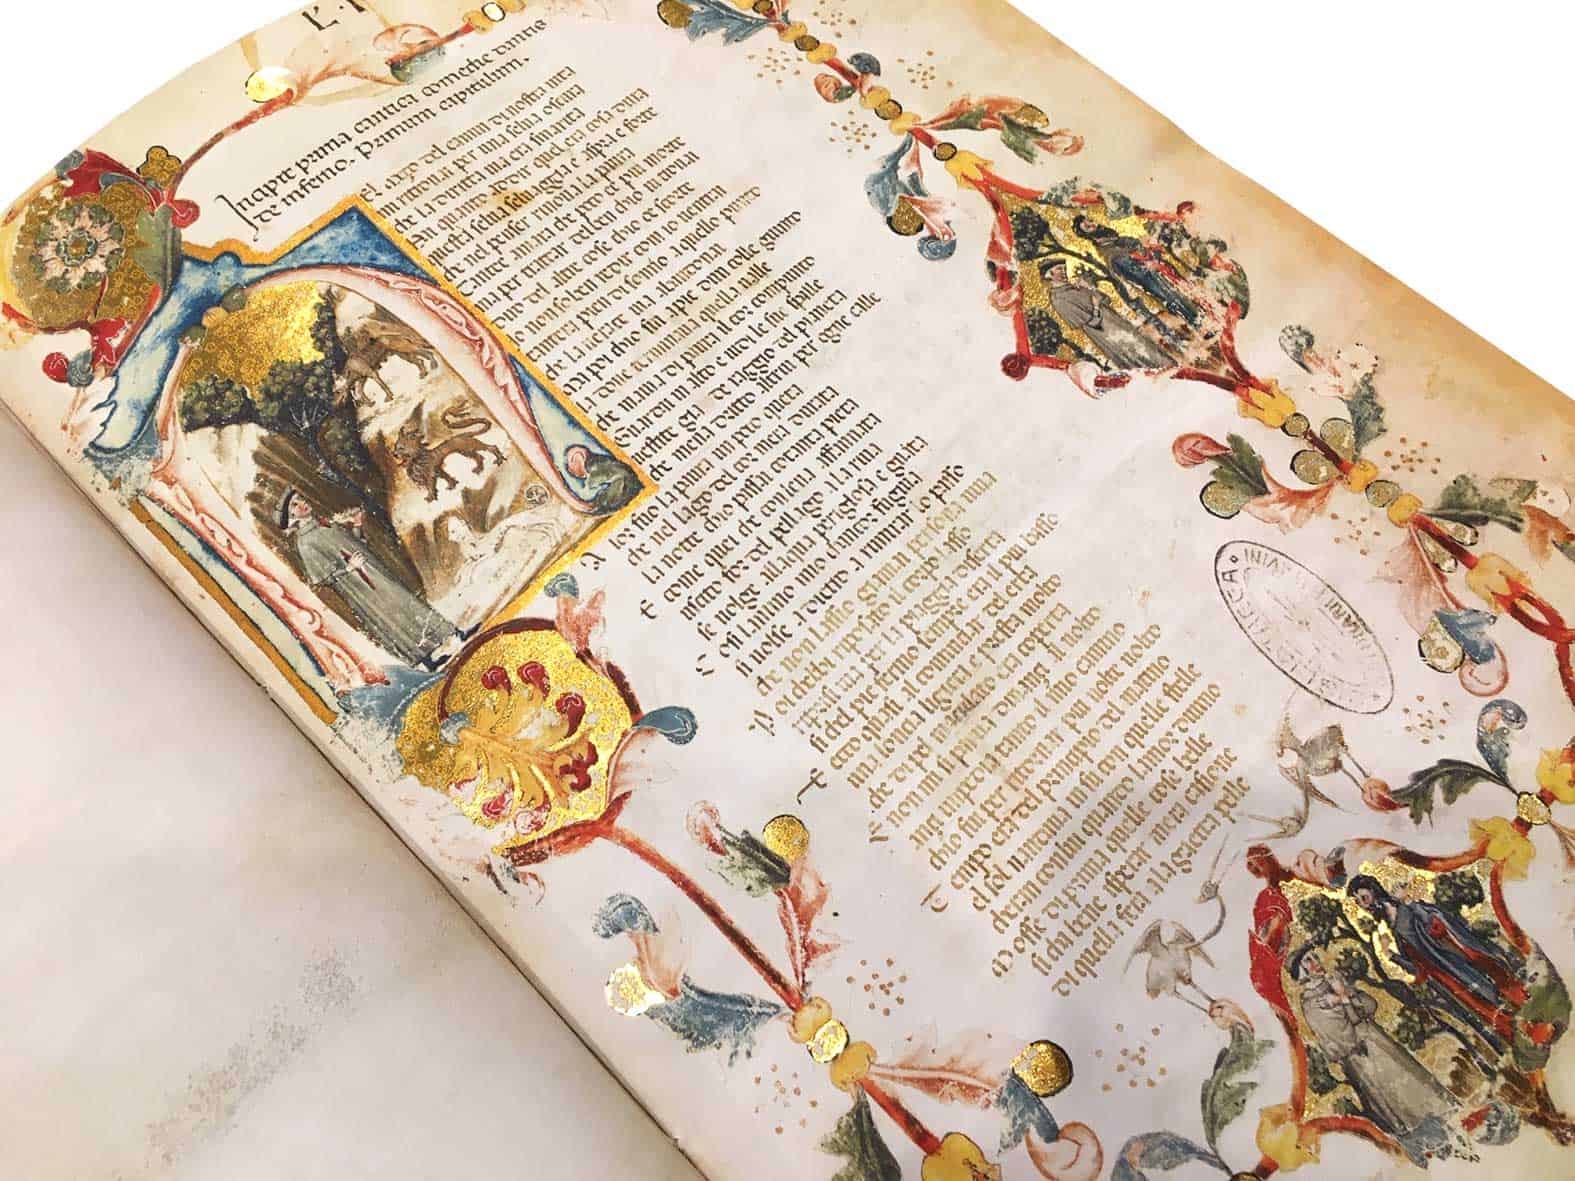 Incipit prima cantica comedie dantis
de inferno. Primum capitulum.
el mezo del camin di nostra uita
mi ritrouai per una selua oscura
che la diritta uia era smarita
quanto a dir quel era cosa dura
questa selua seluaggia e aspra e forte
che nel penser rinoua la paura
Tant e amara che poco e piu morte
ma per trattar del ben chio ui trouai
diro del altre cose chio
Io non so ben ridir com io
tanto era pien di sonno a quello punto
che la uerace uia abandonai
Ma poi chio fui a pie dun colle giunto
la doue terminaua quella ualle
che mauia di paura il cor compunto
Guardai in alto e uidi le sue spalle
uestite gia de raggio del pianeta
che mena dritto altrui per ogne calle
Alor fuo la paura un poco queta
che nel lago del cor mera durata
la notte chio passai cotanta pieta
E come quei che con lena affannata
uscito for del pelago a la riua
se uolge a lacqua perigliosa e guata
Cosi lanimo mio chancor fuggiua
si uolse a dietro a rimirar lo passo
che non lasso gia mai persona uiua
Poi chebbi riposato il corpo lasso
ripresi uia per la piaggia diserta
si chel pie fermo sempre era l piu basso
Et ecco quasi al cominciar del erta
una lonza leggiera e presta molto
che di pel maculato era coperta
E non mi si partia dinanzi al uolto
anzi impediua tanto il mio camino
chio fui per ritornar piu uolte uolto
Tempo era dal principio del matino
el sol montaua in su con quelle stelle
cheran con lui quando lamor diuino
Mosse di prima quelle cose belle
si cha bene sperar mera cagione
di quella fera a la gaietta pelle